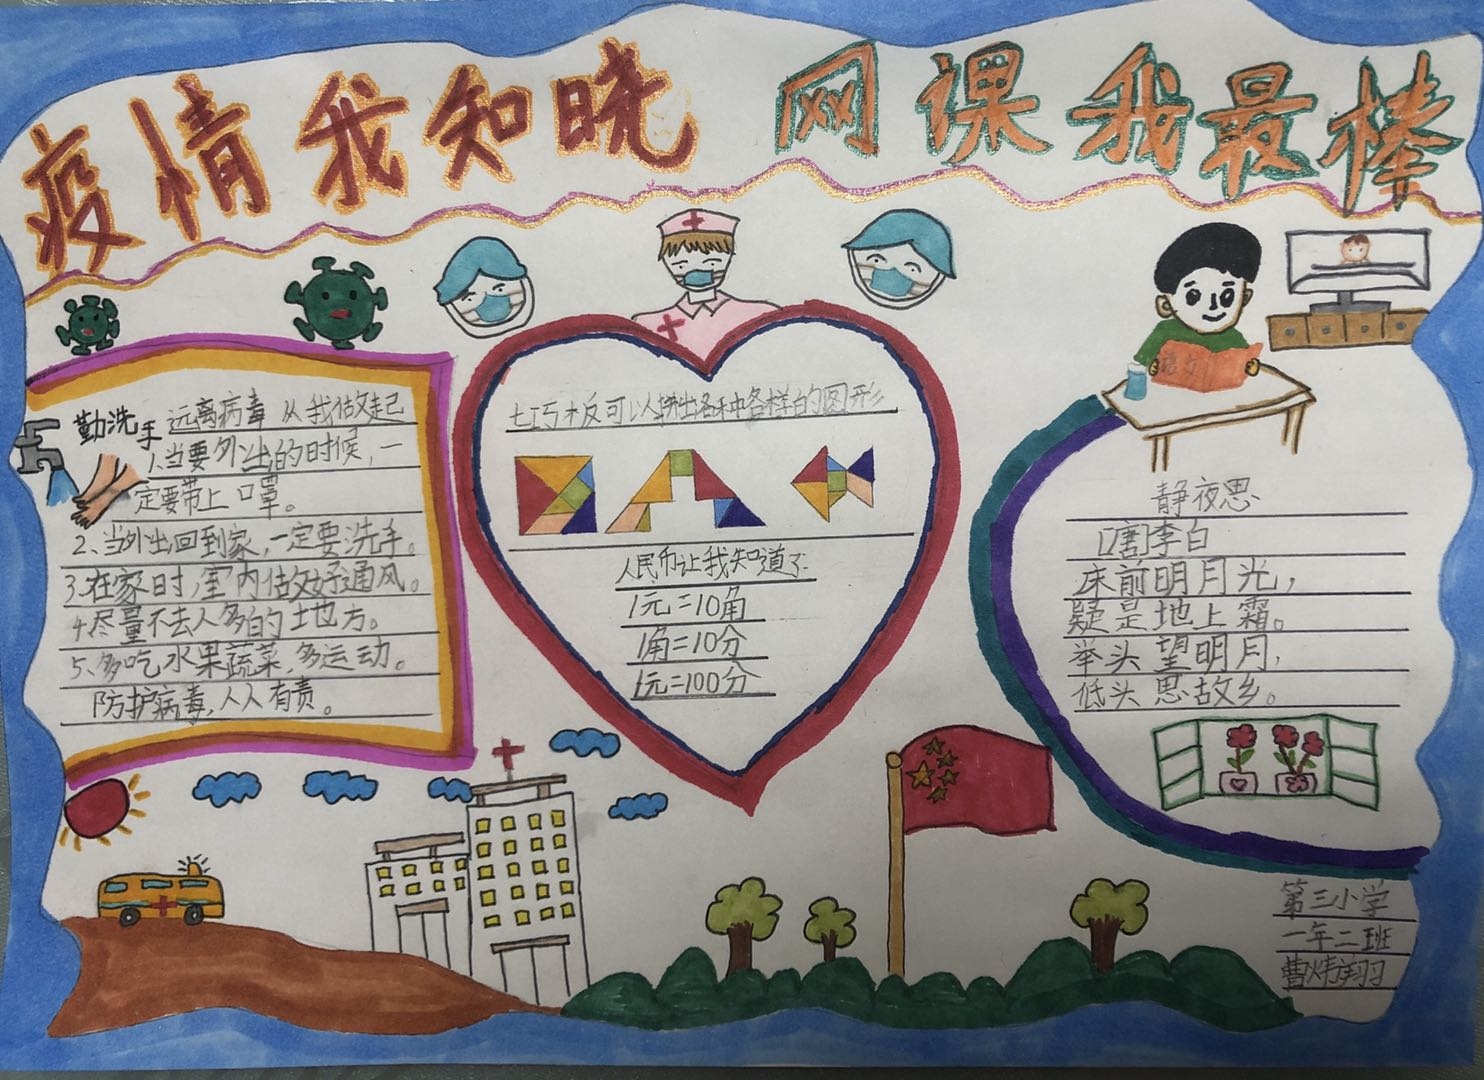 疫情我知晓 网课我最棒
勤洗手 远离病毒 从我做起
1.当要外出的时候,一
定要带上口罩。
2、当外出回到家,一定要洗手。
3.在家时,室内做好通风。
4.尽量不去人多的地方。
5、多吃水果蔬菜,多运动。
防护病毒,人人有责。
七巧板可以拼出各种各样的图形
人民币让我知道了:
1元=10角
1角=10分
1元=100分
语文
静夜思
[唐]李白
床前明月光,
疑是地上霜。
举头望明月,
低头思故乡。
第三小学
一年二班
曹炜翔